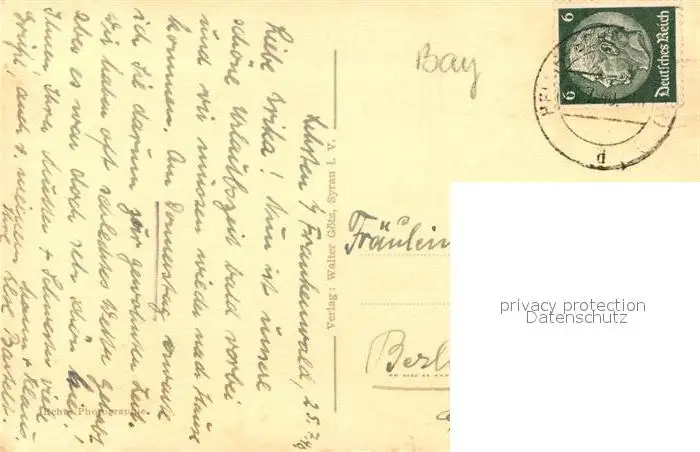 Frankenwald, 25.7.
Liebe Erika! Nun ist unsere
schöne Urlaubszeit bald vorbei
und wir müssen wieder nach Hause
kommen. Am Donnerstag erwarte
ich Sie darum zur gewohnten Zeit.
Wir haben oft schlechtes Wetter gehabt
aber es war doch sehr schön hier!
Ihnen, Ihrer Mutter + Schwester viele
Grüße, auch v. meinem Mann + Klaus.
Ihre Bartelt.
Echte Photographie.
Verlag: Walter Götz, Syrau i. V.
Bay
6 Deutsches Reich 6
d
Fräulein
Berl
privacy protection
Datenschutz